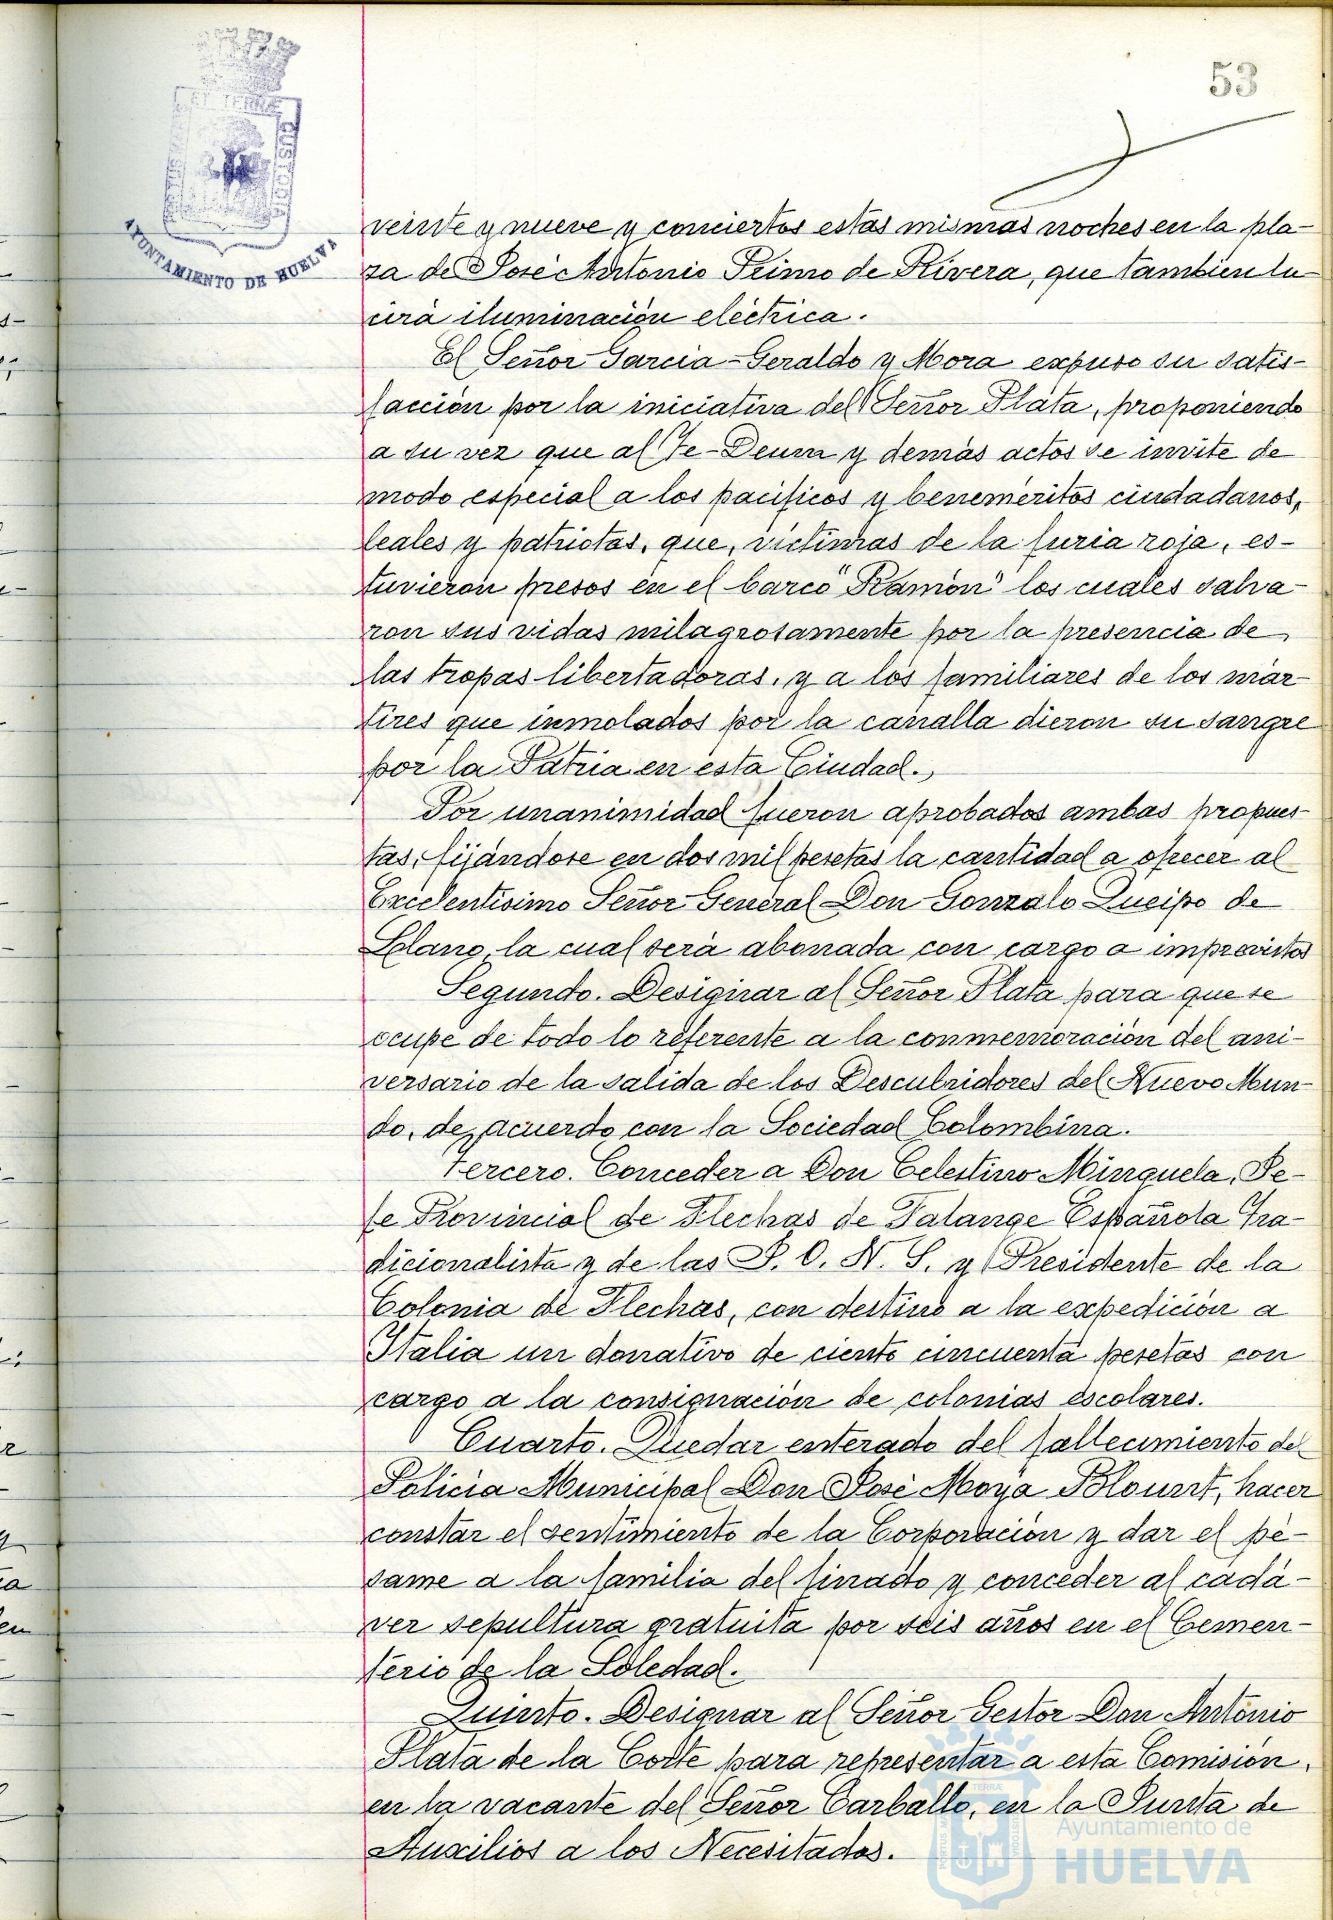 53
ET TERRÆ
CUSTODIA
AYUNTAMIENTO DE HUELVA
veinte y nueve y conciertos estas mismas noches en la pla-
za de José Antonio Primo de Rivera, que tambien lu-
cirá iluminación eléctrica.
El Señor Garcia-Geraldo y Mora expuso su satis-
facción por la iniciativa del Señor Plata, proponiendo
a su vez que al Te-Deum y demás actos se invite de
modo especial a los pacíficos y beneméritos ciudadanos,
leales y patriotas, que, víctimas de la furia roja, es-
tuvieron presos en el barco "Ramón" los cuales salva-
ron sus vidas milagrosamente por la presencia de
las tropas libertadoras, y a los familiares de los már-
tires que inmolados por la canalla dieron su sangre
por la Patria en esta Ciudad.
Por unanimidad fueron aprobados ambas propues-
tas, fijándose en dos mil pesetas la cantidad a ofrecer al
Excelentísimo Señor General Don Gonzalo Queipo de
Llano, la cual será abonada con cargo a imprevistos
Segundo. Designar al Señor Plata para que se
ocupe de todo lo referente a la conmemoración del ani-
versario de la salida de los Descubridores del Nuevo Mun-
do, de acuerdo con la Sociedad Colombina.
Tercero. Conceder a Don Celestino Minguela, Je-
fe Provincial de Flechas de Falange Española Tra-
dicionalista y de las J. O. N. S. y Presidente de la
Colonia de Flechas, con destino a la expedición a
Italia un donativo de ciento cincuenta pesetas con
cargo a la consignación de colonias escolares.
Cuarto. Quedar enterado del fallecimiento del
Policía Municipal Don José Moya Blount, hacer
constar el sentimiento de la Corporación y dar el pé-
same a la familia del finado y conceder al cadá-
ver sepultura gratuita por seis años en el Cemen-
terio de la Soledad.
Quinto. Designar al Señor Gestor Don Antonio
Plata de la Corte para representar a esta Comisión,
en la vacante del Señor Carballo, en la Junta de
Auxilios a los Necesitados.
Ayuntamiento de
HUELVA